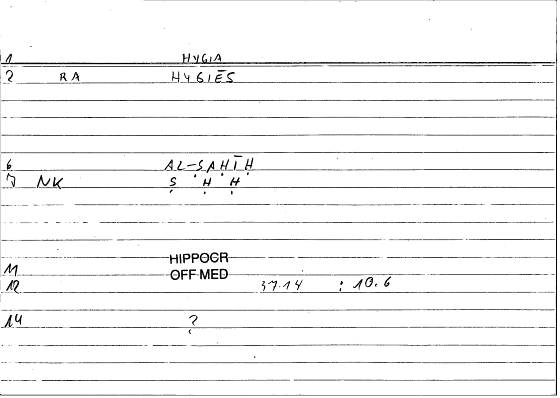 1 HYGIA
2 RA HYGIĒS
6 AL-ṢAḤĪḤ
7 NK Ṣ Ḥ Ḥ
HIPPOCR
11 OFF MED
12 37.14 : 10.6
14 ?